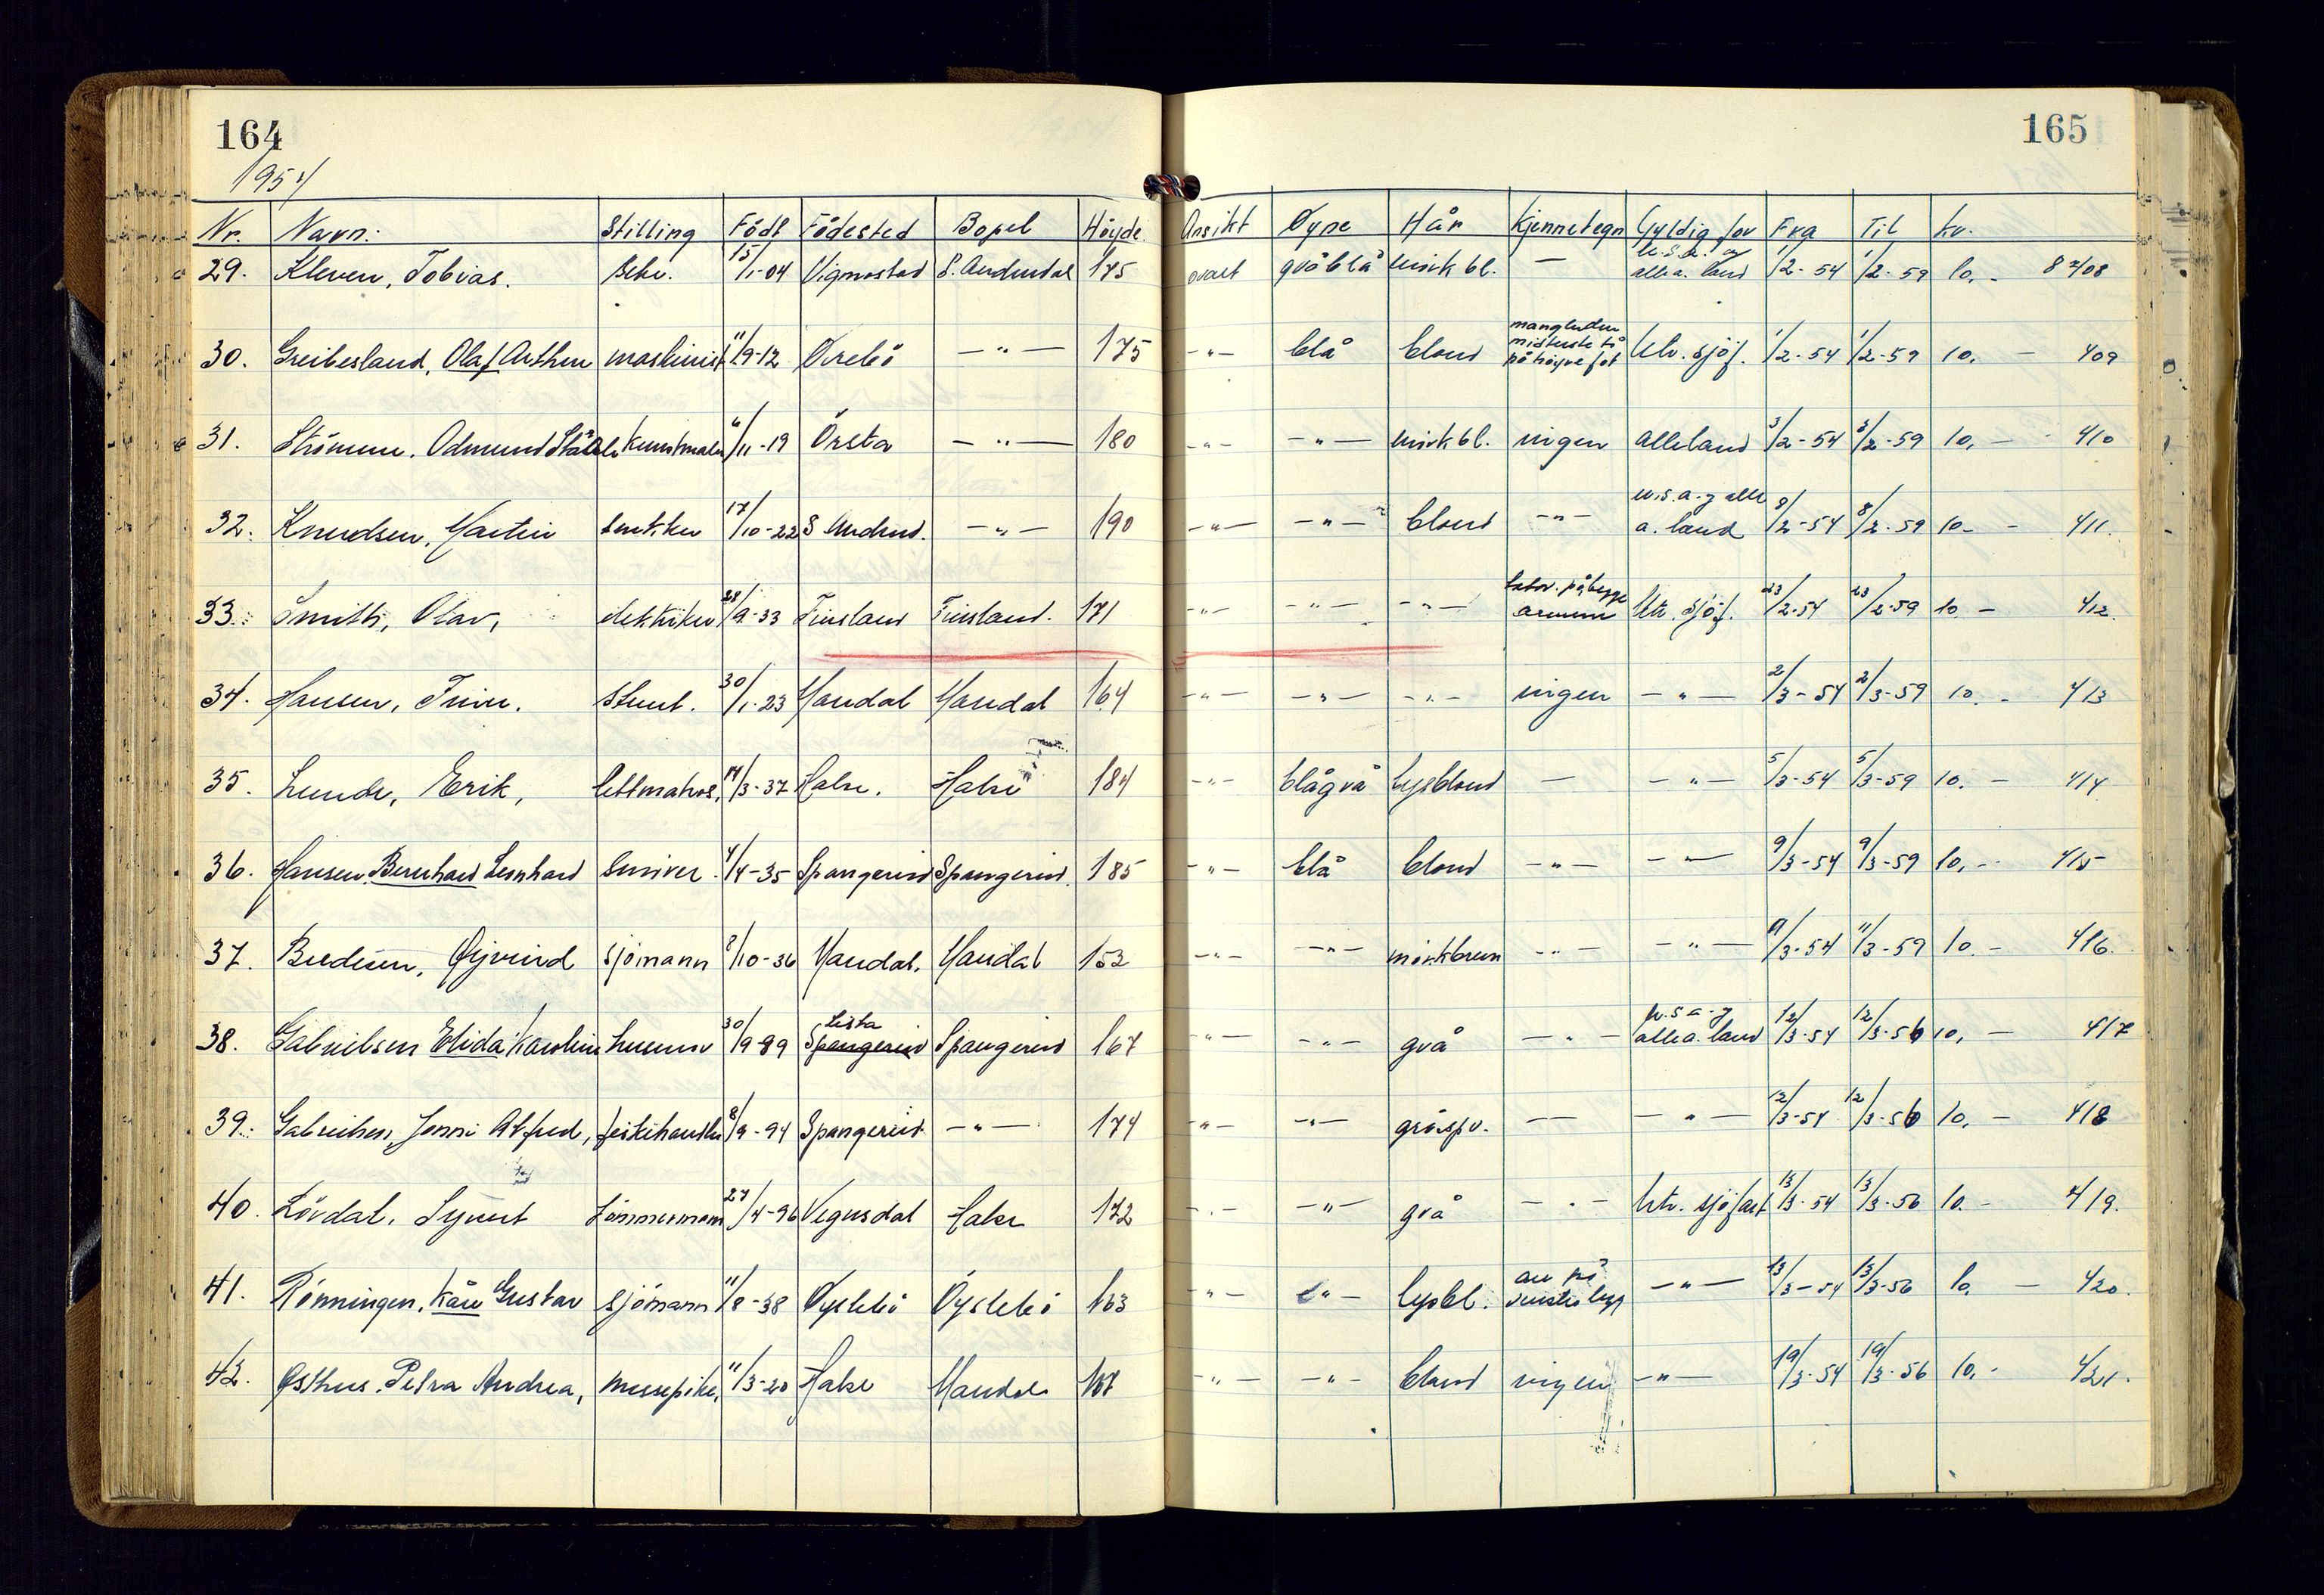 164
165
1954
Nr. Navn: Stilling Född Födested Bopel Höyde. Ansikt Øyne Hår Kjennetegn Gyldig for Fra Til kr.
29. Kleven, Tobias. 15/1-04 Vigmostad S. Audnedal 175 ovalt gråblå mörk bl. — U.S.A. og alle a. land 1/2-54 1/2-59 10,- 8408
30. Greibesland, Olaf Arthur maskinist 11/9-12 Øvrebö —"— 175 -"- blå blond manglende midterste tå på höyre fot utv. sjöf. 1/2-54 1/2-59 10,- 409
31. Strömme, Odmund Ståle kunstmaler 6/11-19 Örsta —"— 180 -"- —"— mörk bl. ingen alle land 3/2-54 3/2-59 10,- 410
32. Knudsen, Martin 17/10-22 S Audned. —"— 190 —"— —"— blond —"— u.s.a. og alle a. land 8/2-54 8/2-59 10- 411.
33. Smith, Olav, elektriker 28/9-33 Finsland Finsland. 171 -"- —"— —"— tatov. på begge armene utv. sjöf. 23/2-54 23/2-59 10- 412.
34. Hansen, 30/1-23 Mandal Mandal 164 —"— —"— —"— ingen —"— 2/3-54 2/3-59 10.- 413
35. Lunde, Erik, lettmatros, 14/3-37 Halse. Halse 184 -"- blågrå lysblond — —"— 5/3-54 5/3-59 10.- 414
36. Hansen, Bernhard Leonhard 4/4-35 Spangereid Spangereid. 185 -"- blå blond —"— —"— 9/3-54 9/3-59 10,- 415
37. Øyvind sjömann 2/10-36 Mandal. Mandal 153 -"- —"— mörkbrun -"- —"— 11/3-54 11/3-59 10.- 416.
38. Gabrielsen Elida Karoline husmor 30/9-89 Lista Spangereid Spangereid 167 -"- —"— grå —"— u.s.a. og alle a. land 12/3-54 12/3-56 10,- 417
39. Gabrielsen, Jonni Alfred, fiskehandler 8/9-94 Spangereid. —"— 174 -"- —"— gråspr. — —"— 12/3-54 12/3-56 10,- 418
40. Lövdal, Synert tömmermann 27/4-96 Vegusdal Halse 172 -"- —"— grå —"— utv. sjöfart 13/3-54 13/3-56 10.- 419.
41. Rönningen, Kåre Gustav sjömann 11/8-38 Øyslebö Öyslebö 163 -"- —"— lysbl. arr på venstre legg —"— 13/3-54 13/3-56 10,- 420.
42. Østhus, Petra Andrea, messepike, 11/3-20 Halse Mandal 167 —"— —"— blond ingen —"— 19/3-54 19/3-56 10,- 421.